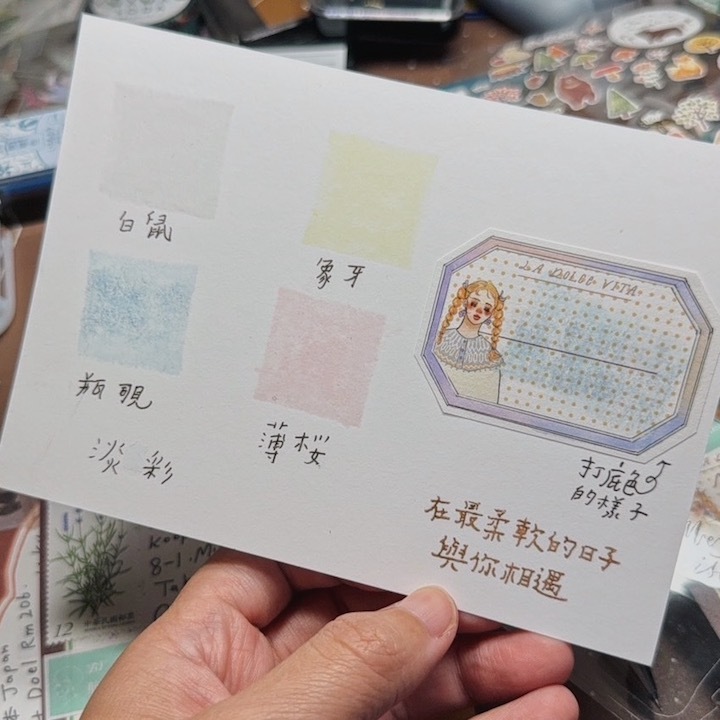 白鼠
象牙
瓶覗
薄桜
淡彩
LA DOLCE VITA
打底色
的樣子
在最柔軟的日子
與你相遇
12
8-1
# Japan
Doel Rm 206.